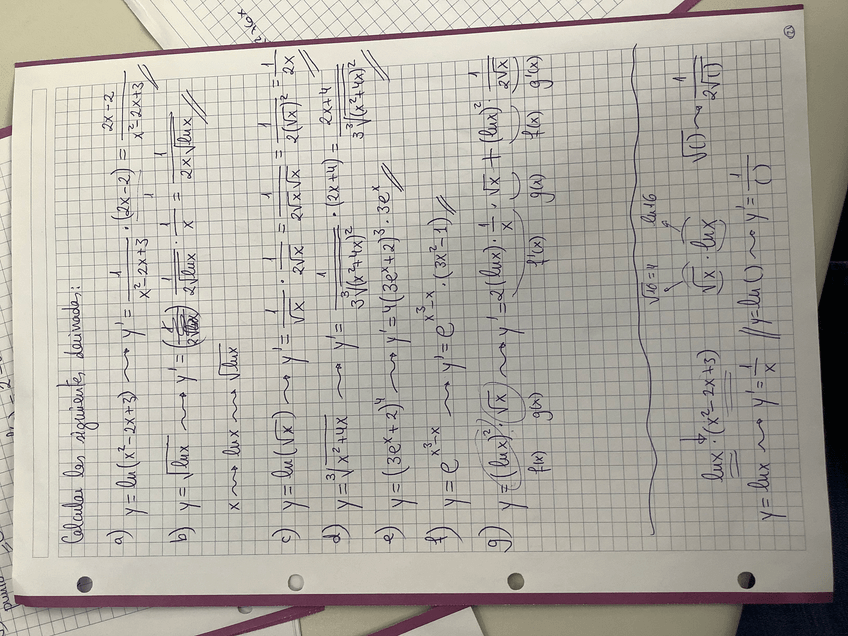 Calcular las siguientes derivadas:
a) y = ln(x²-2x+3) ⇝ y' = 1/(x²-2x+3) · (2x-2)/1 = (2x-2)/(x²-2x+3) //
b) y = √lnx ⇝ y' = 1/(2√lnx) · 1/x = 1/(2x√lnx) //
x ⇝ lnx ⇝ √lnx
c) y = ln(√x) ⇝ y' = 1/√x · 1/(2√x) = 1/(2√x√x) = 1/(2(√x)²) = 1/(2x) //
d) y = ³√(x²+4x) ⇝ y' = 1/(3 ³√(x²+4x)²) · (2x+4) = (2x+4)/(3 ³√(x²+4x)²) //
e) y = (3eˣ+2)⁴ ⇝ y' = 4(3eˣ+2)³ · 3eˣ //
f) y = e^(x³-x) ⇝ y' = e^(x³-x) · (3x²-1) //
g) y = (lnx)² · √x ⇝ y' = 2(lnx) · 1/x · √x + (lnx)² · 1/(2√x)
f(x) g(x) f'(x) g(x) f(x) g'(x)
√16=4 ln16
lnx · (x²-2x+3) √x · lnx √() ⇝ 1/(2√())
y = lnx ⇝ y' = 1/x // y = ln() ⇝ y' = 1/()